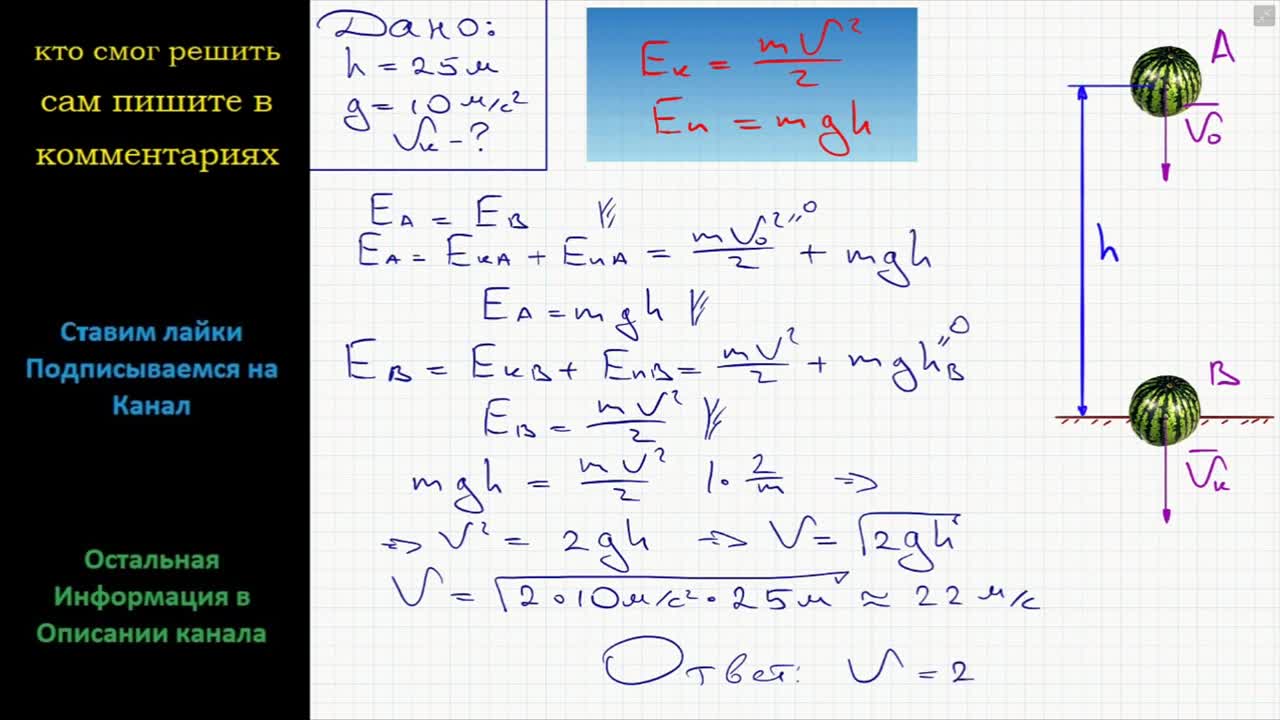 кто смог решить
сам пишите в
комментариях
Ставим лайки
Подписываемся на
Канал
Остальная
Информация в
Описании канала
Дано:
h = 25 м
g = 10 м/с²
Vк - ?
Eк = mV²/2
Eп = mgh
EA = EB
EA = EкA + EпA = mV₀²/2 + mgh
"0
EA = mgh
EB = EкB + EпB = mV²/2 + mghB
"0
EB = mV²/2
mgh = mV²/2 | · 2/m ⇒
⇒ V² = 2gh ⇒ V = √2gh
V = √2·10м/с²·25м ≈ 22 м/с
Ответ: V = 2
A
V₀
h
B
Vк